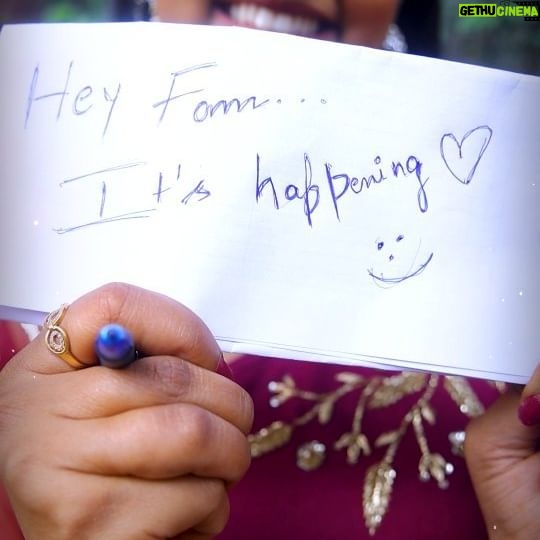 GETHUCINEMA
Hey Fam...
It's happening